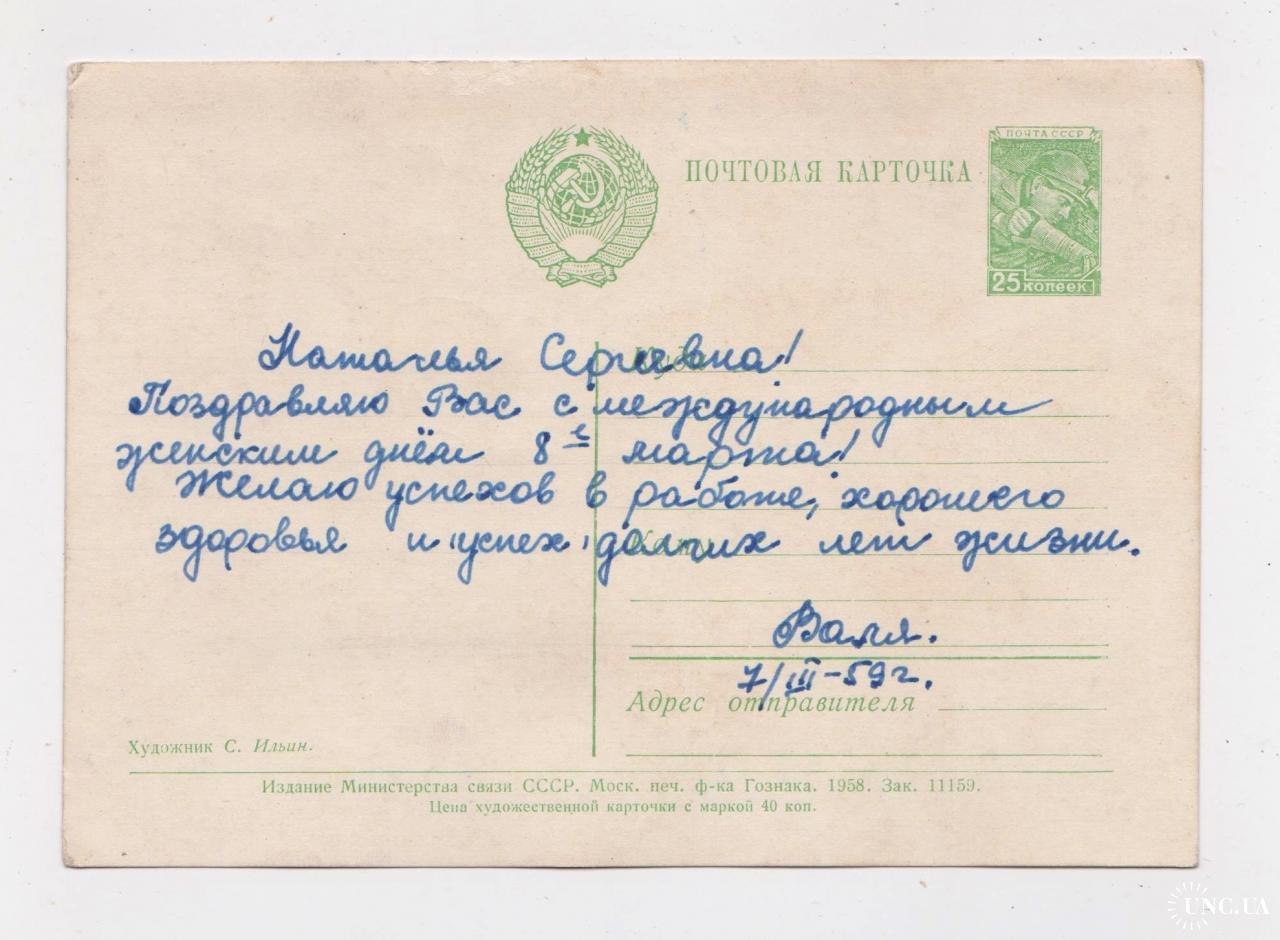 ПОЧТА СССР
ПОЧТОВАЯ КАРТОЧКА
25 копеек
Наталья Сергеевна!
Куда
Поздравляю Вас с международным
женским днём 8е марта!
Желаю успехов в работе, хорошего
здоровья и успех долгих лет жизни.
Кому
Валя.
7/III-59 г.
Адрес отправителя
Художник С. Ильин.
Издание Министерства связи СССР. Моск. печ. ф-ка Гознака. 1958. Зак. 11159.
Цена художественной карточки с маркой 40 коп.
UNC.UA